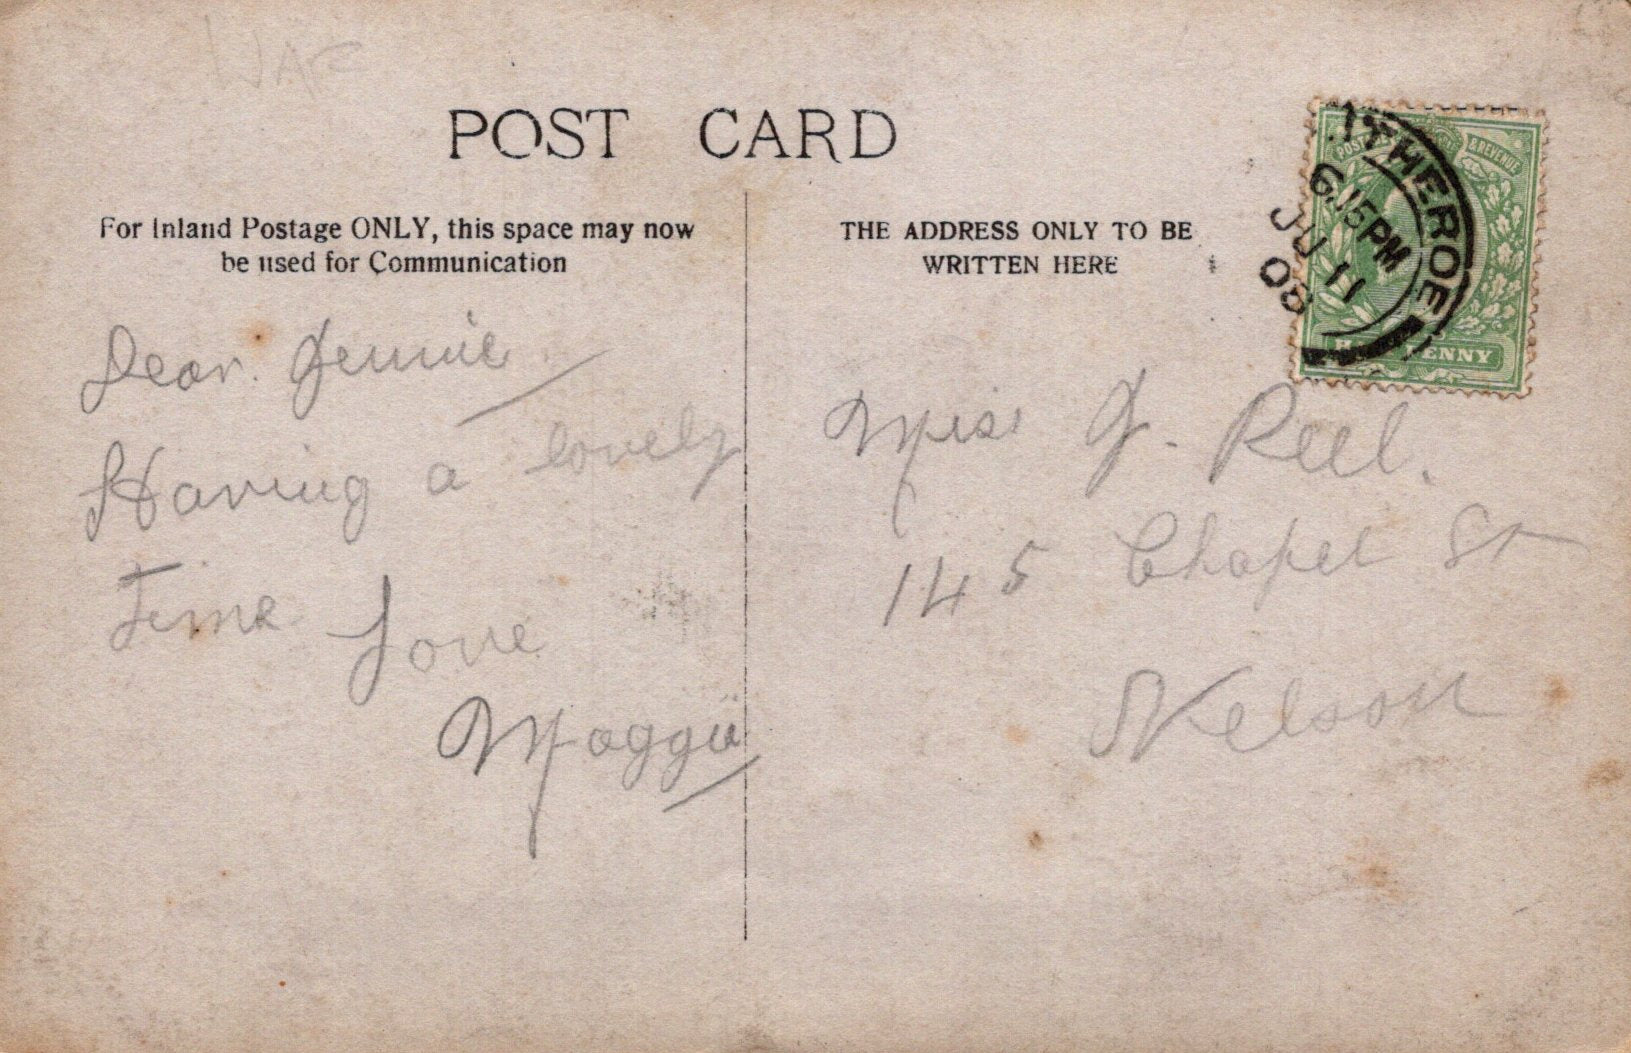 WAR
POST CARD
For Inland Postage ONLY, this space may now
be used for Communication
THE ADDRESS ONLY TO BE
WRITTEN HERE
POSTAGE & REVENUE
HALFPENNY
ITHEROE
6.15PM
JU 11
08
Dear. Jennie
Having a lovely
Time
Love
Maggie
Miss J. Peel.
145 Chapel St
Nelson